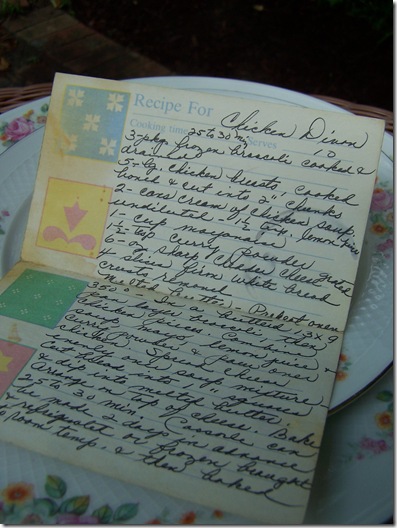 Recipe For Chicken Divan
Cooking time 25 to 30 min Serves 10
3-pkg. frozen broccoli cooked &
drained
5-lg. chicken breasts, cooked
boned & cut into 2" chunks
2-cans cream of chicken soup,
undiluted - 1 lemon juice
1-cup mayonnaise
1/2-tsp curry powder
6-oz sharp cheddar cheese grated
4 slices firm white bread
crusts removed
melted butter - Preheat oven
350° - In a buttered 13 x 9
broccoli, then
chicken pieces. Combine
curry, mayo, lemon juice
Spoon over
chicken. Spread cheese
evenly over soup mixture
Cut bread into 1" squares
& dip into melted butter,
arrange on top of cheese. Bake
25 to 30 min. (Casserole can
be made a day in advance
& refrigerated or frozen, brought
to room temp. & then baked